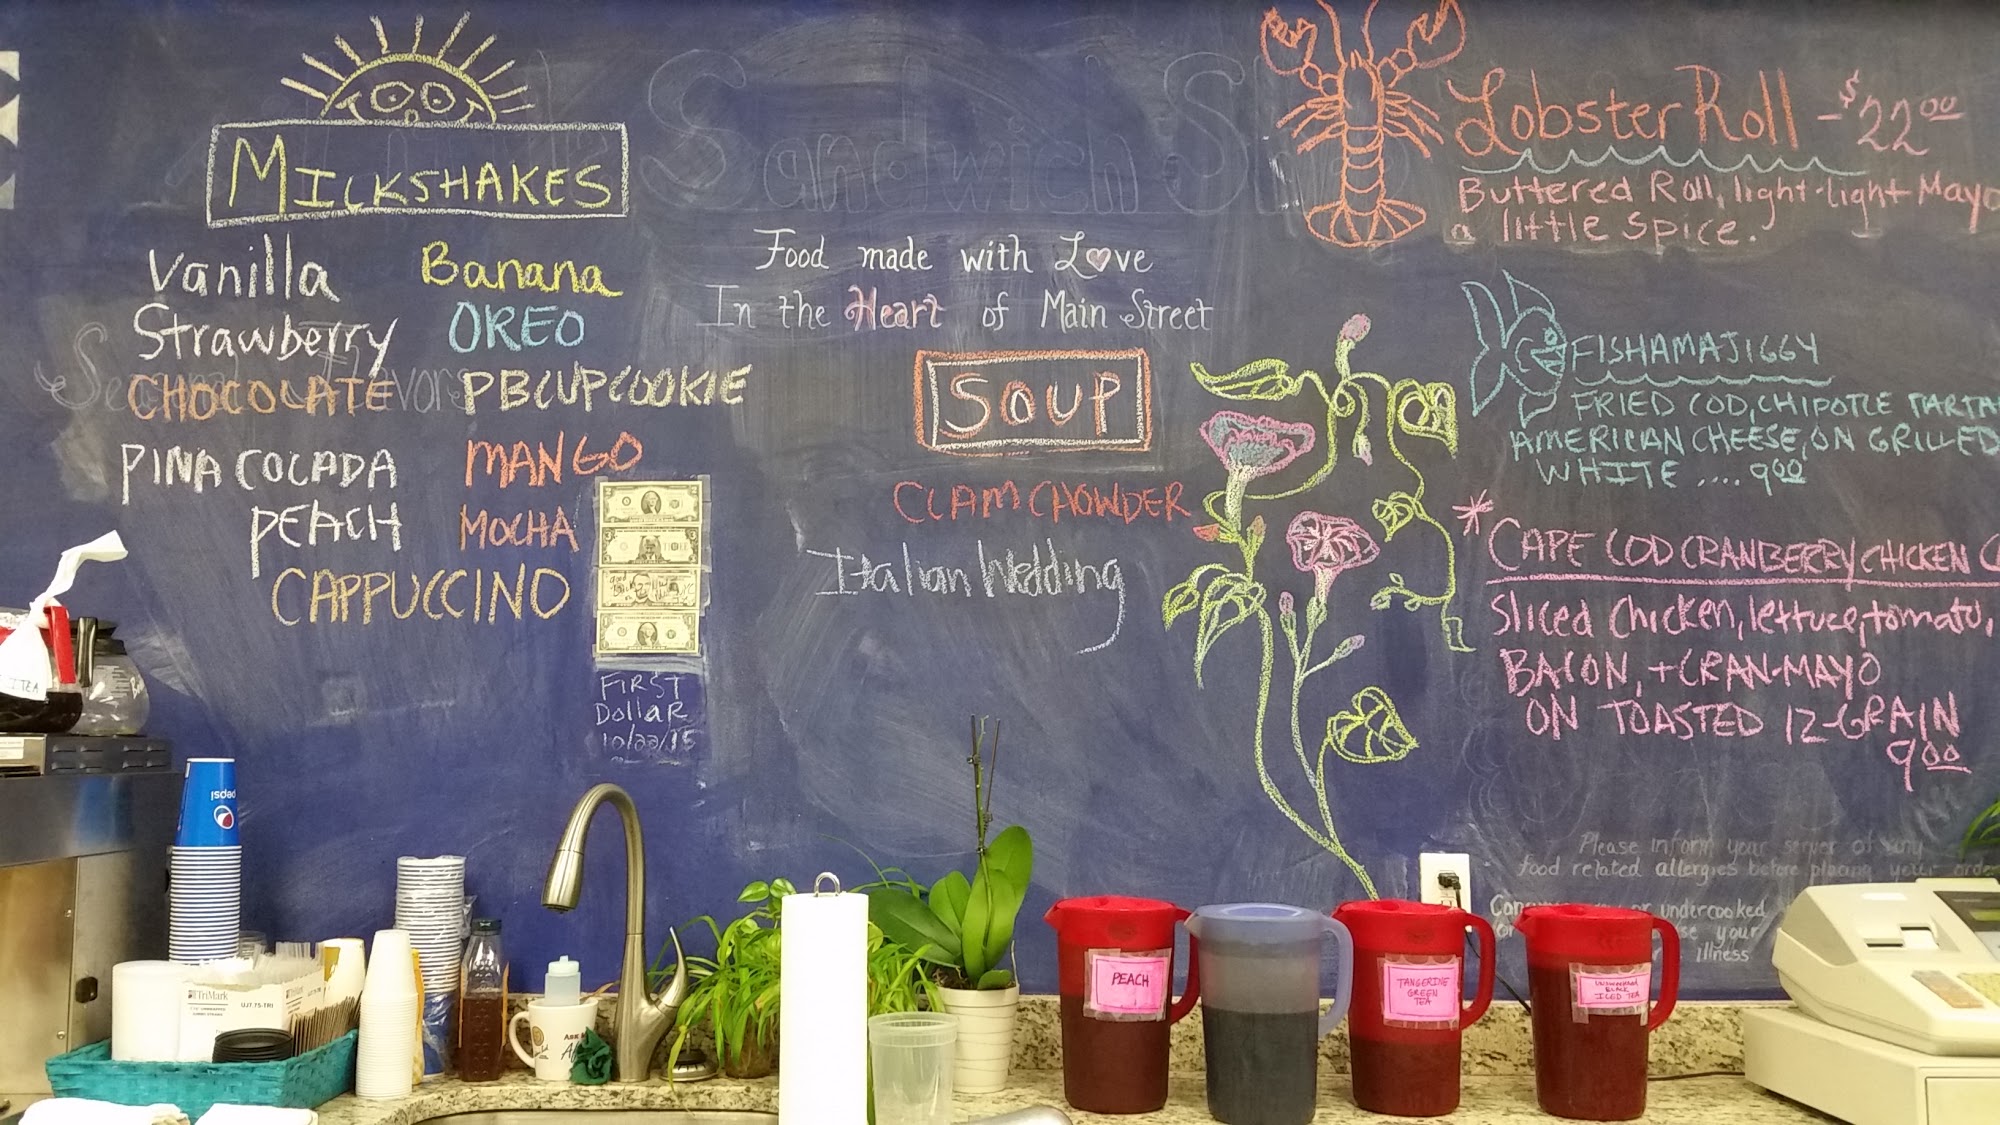 MILKSHAKES
Vanilla
Banana
Strawberry
OREO
CHOCOLATE
PBCUPCOOKIE
PINA COLADA
MANGO
PEACH
MOCHA
CAPPUCCINO
FIRST
Dollar
10/22/15
Sandwich
Seasonal Flavors
Food made with Love
In the Heart of Main Street
SOUP
CLAM CHOWDER
Italian Wedding
Lobster Roll - $22.00
Buttered Roll, light-light Mayo
a little spice.
FISHAMAJIGGY
FRIED COD, CHIPOTLE TARTA
AMERICAN CHEESE, ON GRILLED
WHITE .... 9.00
* CAPE COD CRANBERRY CHICKEN
Sliced Chicken, lettuce, tomato,
BACON, + CRAN-MAYO
ON TOASTED 12-GRAIN
9.00
Please inform your server of any
food related allergies before placing your orde
or undercooked
your
illness
TEA
pepsi
TriMark
UJ7.75-TRI
PEACH
TANGERINE
GREEN
TEA
BLACK
ICED TEA